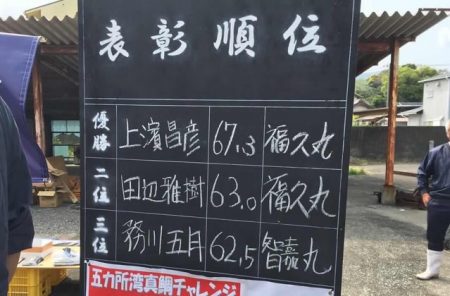 表彰順位
優勝 上濱昌彦 67.3 福久丸
二位 田辺雅樹 63.0 福久丸
三位 務川五月 62.5 智嘉丸
五カ所湾真鯛チャレンジ